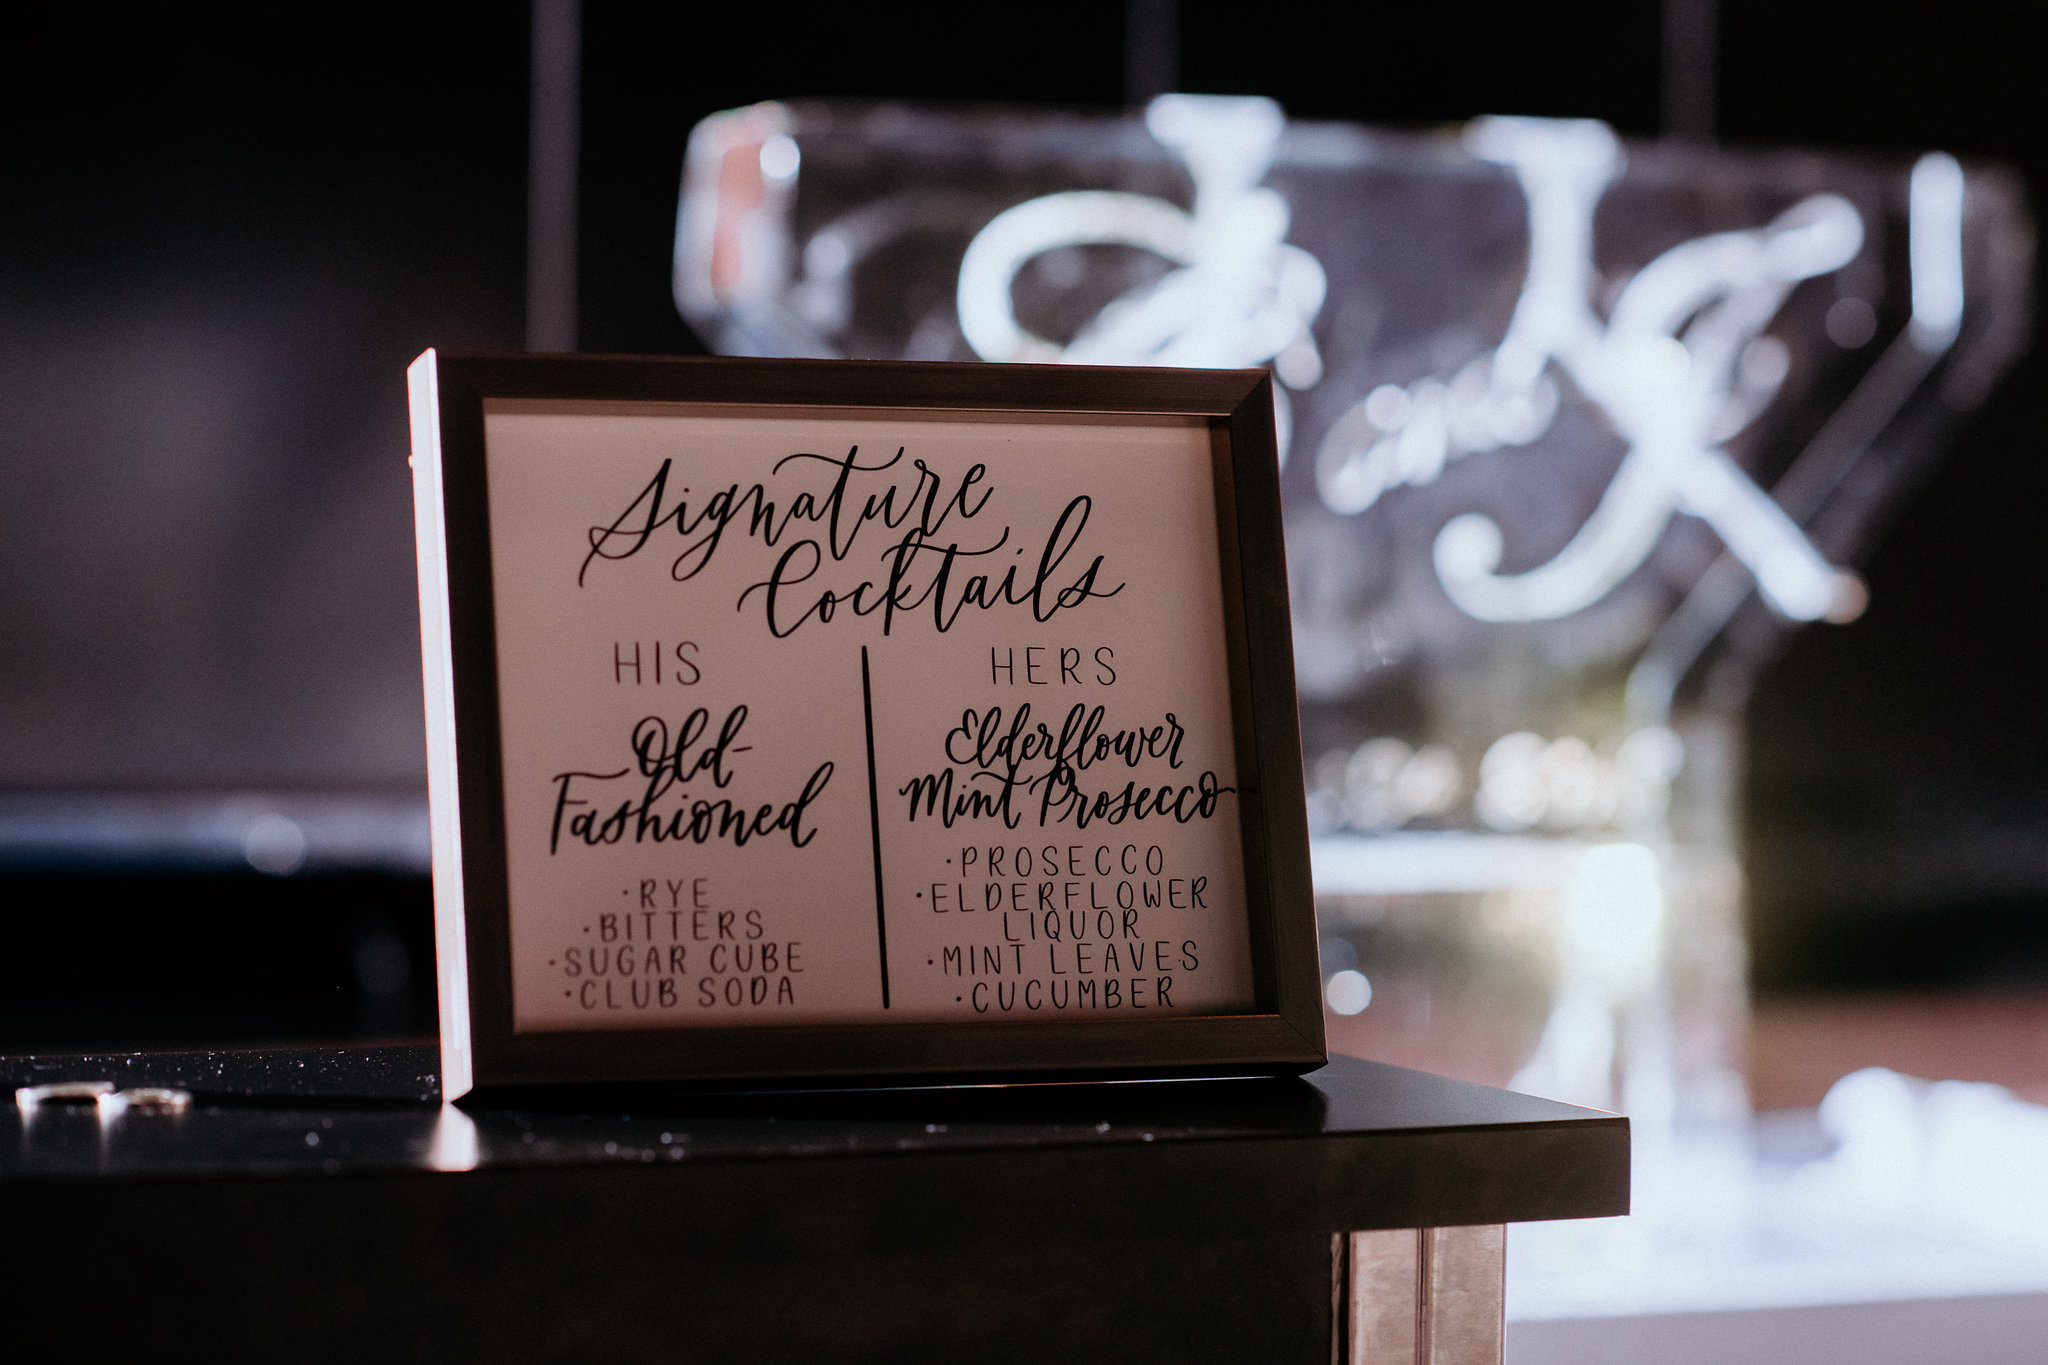 Signature
Cocktails
HIS
Old-
Fashioned
·RYE
·BITTERS
·SUGAR CUBE
·CLUB SODA
HERS
Elderflower
Mint Prosecco
·PROSECCO
·ELDERFLOWER
LIQUOR
·MINT LEAVES
·CUCUMBER